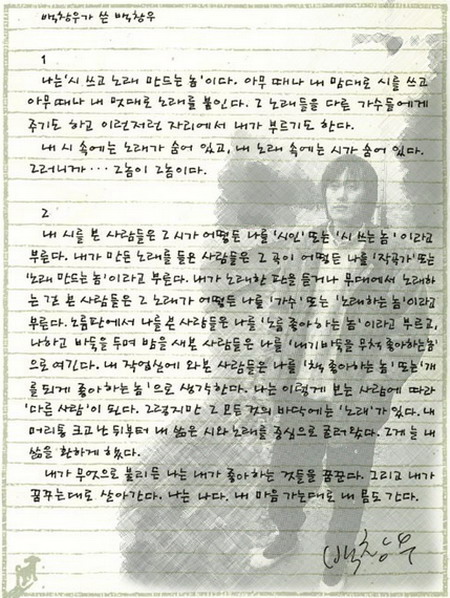 백창우가 쓴 백창우
1
나는 '시 쓰고 노래 만드는 놈'이다. 아무 때나 내 맘대로 시를 쓰고
아무 때나 내 멋대로 노래를 붙인다. 그 노래들을 다른 가수들에게
주기도 하고 이런저런 자리에서 내가 부르기도 한다.
내 시 속에는 노래가 숨어 있고, 내 노래 속에는 시가 숨어 있다.
그러니까... 그놈이 그놈이다.
2
내 시를 본 사람들은 그 시가 어떻든 나를 '시인' 또는 '시 쓰는 놈'이라고
부른다. 내가 만든 노래를 들은 사람들은 그 곡이 어떻든 나를 '작곡가' 또는
'노래 만드는 놈'이라고 부른다. 내가 노래한 판을 듣거나 무대에서 노래하
는 걸 본 사람들은 그 노래가 어떻든 나를 '가수' 또는 '노래하는 놈'이라고
부른다. 노름판에서 나를 본 사람들은 나를 '노름 좋아하는 놈'이라고 부르고,
나하고 바둑을 두며 밤을 새본 사람들은 나를 '내기바둑을 무척 좋아하는 놈'
으로 여긴다. 내 작업실에 와본 사람들은 나를 '책 좋아하는 놈' 또는 '개
를 되게 좋아하는 놈'으로 생각한다. 나는 이렇게 보는 사람에 따라
'다른 사람'이 된다. 그렇지만 그 모든 것의 바닥에는 '노래'가 있다. 내
머리통 크고 난 뒤부터 내 삶은 시와 노래를 중심으로 굴러왔다. 그게 늘 내
삶을 환하게 했다.
내가 무엇으로 불리든 나는 내가 좋아하는 것들을 꿈꾼다. 그리고 내가
꿈꾸는대로 살아간다. 나는 나다. 내 마음 가는대로 내 몸도 간다.
백창우